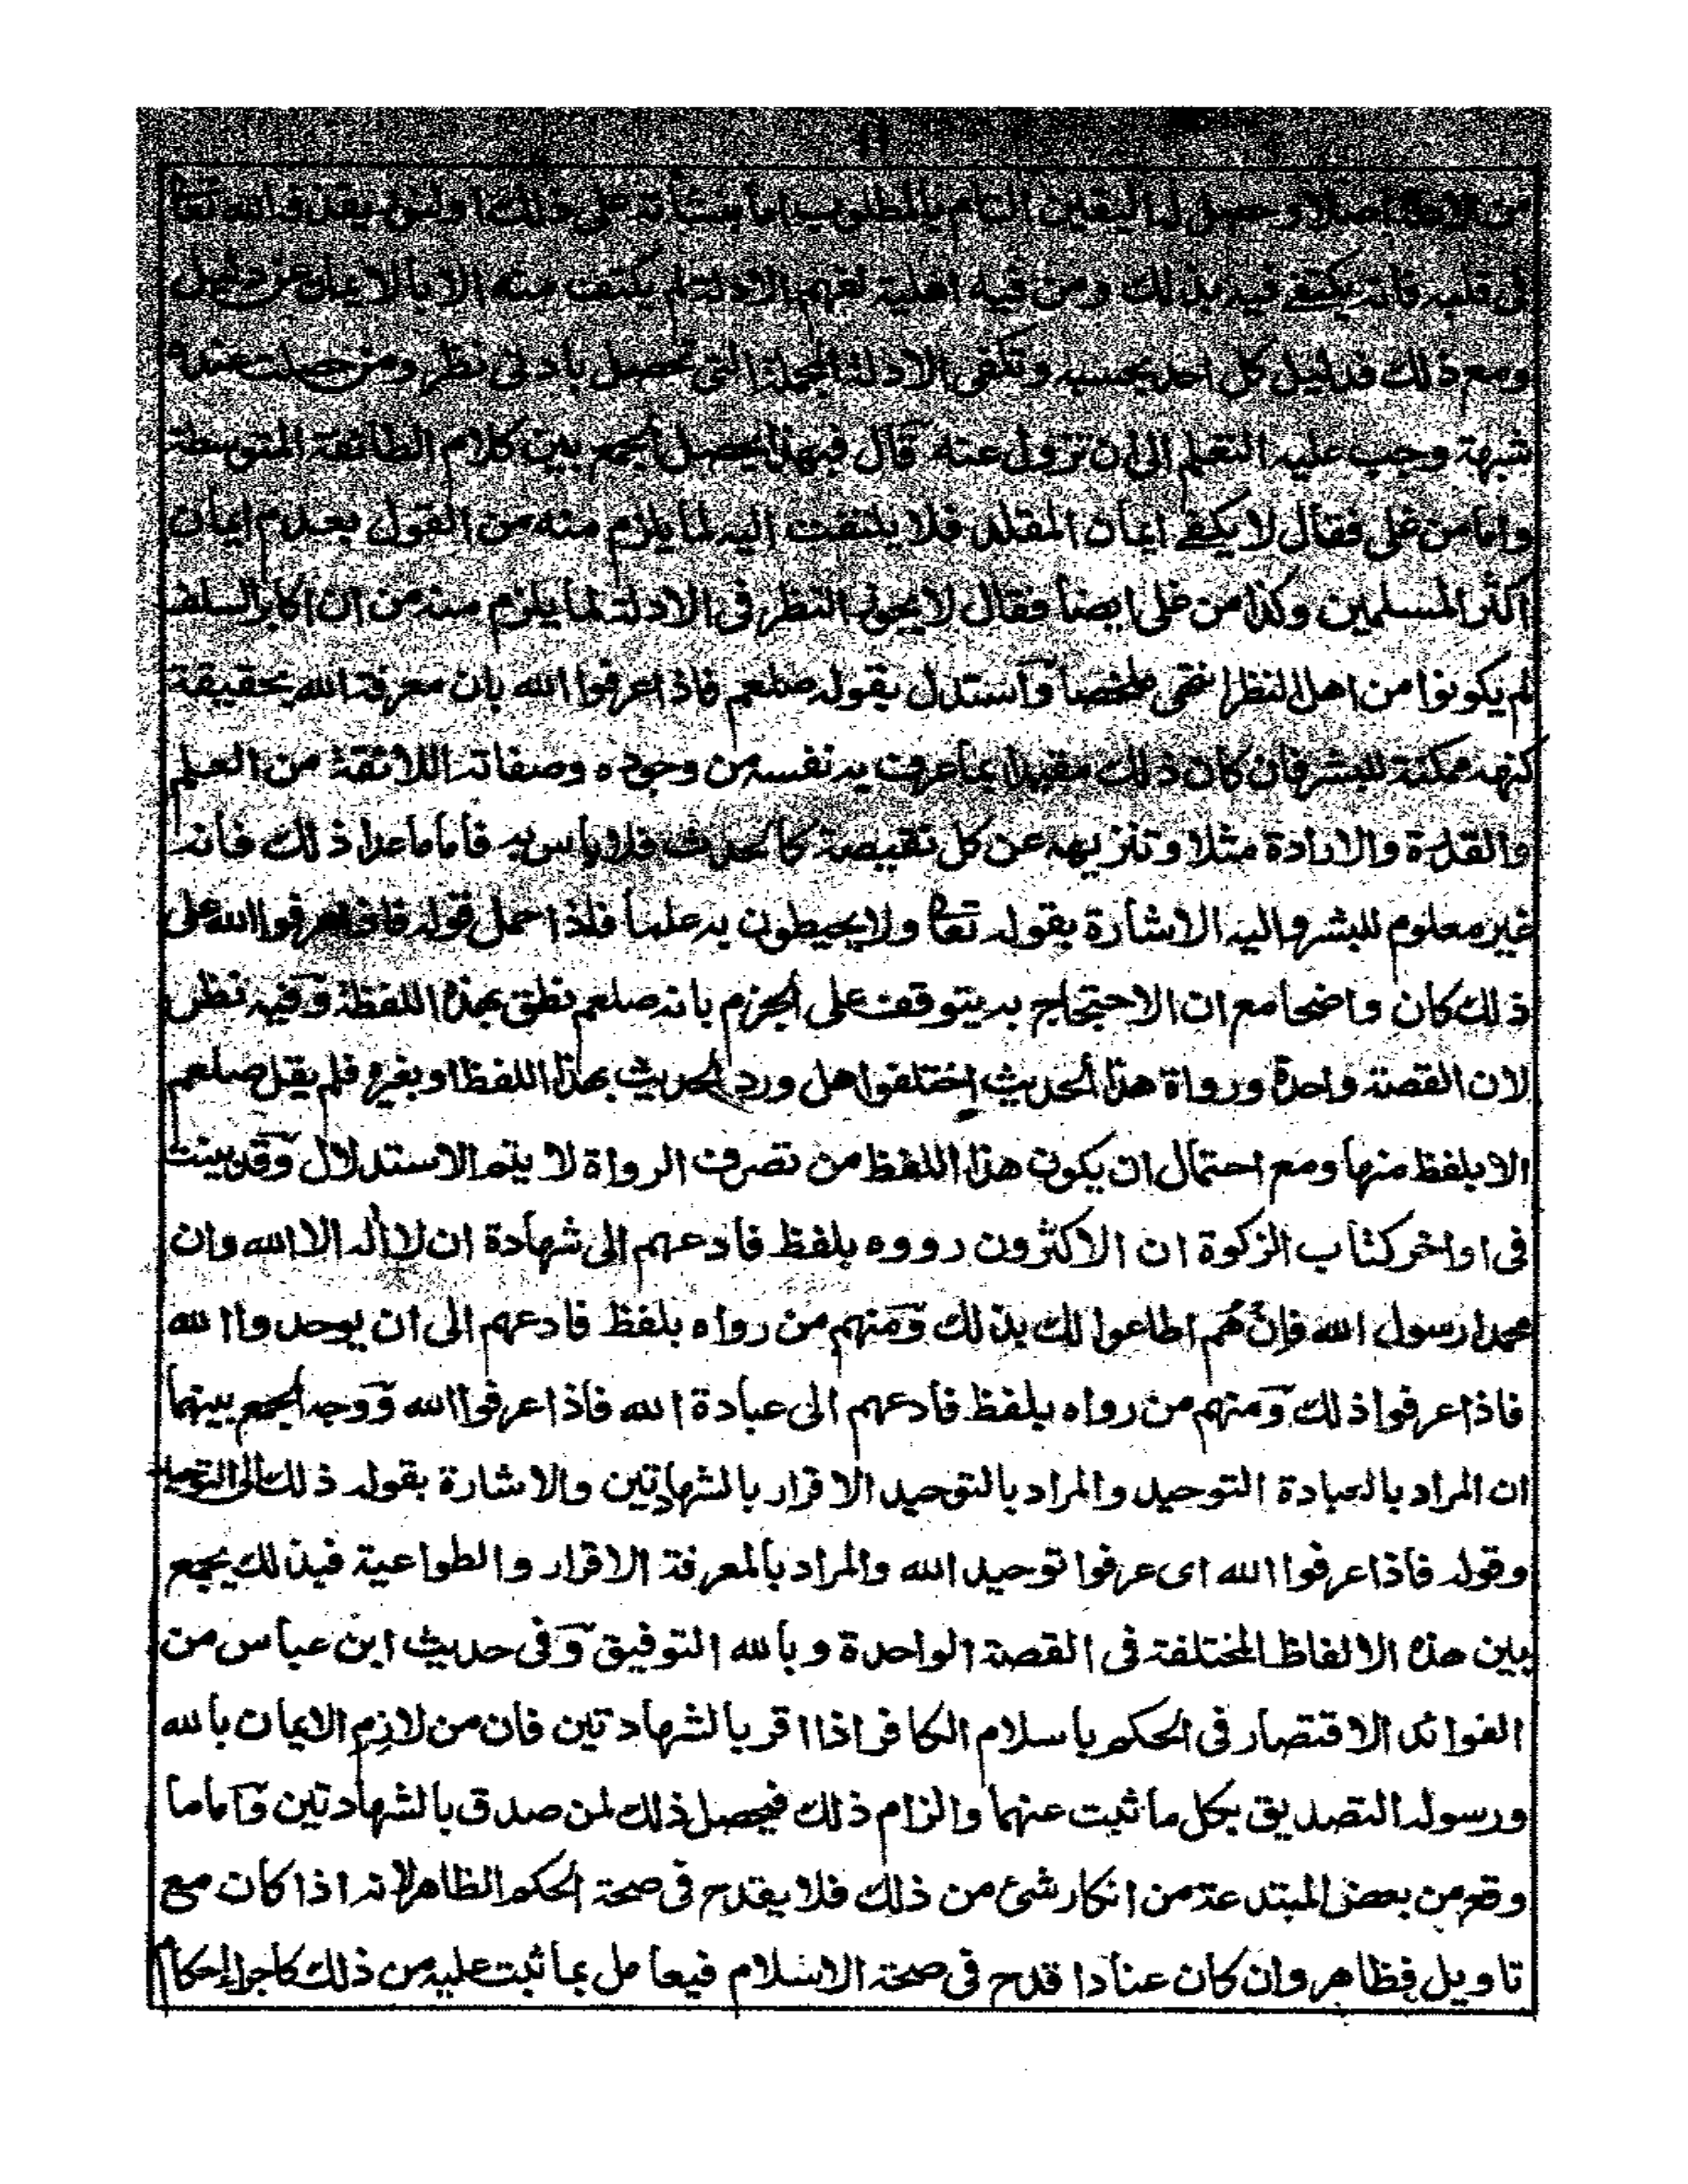 من الادلة اصلا وحصل له اليقين التام بالمطلوب اما بنشأته على ذلك او لنور يقذفه الله تعا
فى قلبه فانه يكتفے فيه بذلك ومن فيه اهلية لفهم الادلة لم يكتف منه الا بالايمان عن دليل
ومع ذلك فدليل كل احد بحسبه وتكفى الادلة المجملة التى تحصل بادنى نظر ومن حصلت عنده
شبهة وجب عليه التعلم الى ان تزول عنه قال فبهذا يحصل الجمع بين كلام الطائفة المتوسطة
واما من غلى فقال لا يكفے ايمان المقلد فلا يلتفت اليه لما يلزم منه من القول بعدم ايمان
اكثر المسلمين وكذا من غلى ايضا فقال لا يجوز النظر فى الادلة لما يلزم منه من ان اكابر السلف
لم يكونوا من اهل النظر انتهى ملخصا واستدل بقوله صلعم فاذا عرفوا الله بان معرفة الله بحقيقة
كنهه ممكنة للبشر فان كان ذلك مقيدا بما عرف به نفسه من وجوده وصفاته اللائقة من العلم
والقدرة والارادة مثلا وتنزيهه عن كل نقيصة كالحدوث فلا باس به فاما ما عدا ذلك فانه
غير معلوم للبشر واليه الاشارة بقوله تعا ولا يحيطون به علما فلذا حمل قوله فاذا عرفوا الله على
ذلك كان واضحا مع ان الاحتجاج به يتوقف على الجزم بانه صلعم نطق بهذه اللفظة وفيه نظر
لان القصة واحدة ورواة هذا الحديث اختلفوا هل ورد الحديث بهذا اللفظ او بغيره فلم يقل صلعم
الا بلفظ منها ومع احتمال ان يكون هذا اللفظ من تصرف الرواة لا يتم الاستدلال وقد بينت
فى اواخر كتاب الزكوة ان الاكثرون رووه بلفظ فادعهم الى شهادة ان لا اله الا الله وان
محمدا رسول الله فان هم اطاعوا لك بذلك ومنهم من رواه بلفظ فادعهم الى ان يوحدوا الله
فاذا عرفوا ذلك ومنهم من رواه بلفظ فادعهم الى عبادة الله فاذا عرفوا الله ووجه الجمع بينهما
ان المراد بالعبادة التوحيد والمراد بالتوحيد الاقرار بالشهادتين والاشارة بقوله ذلك الى التوحيد
وقوله فاذا عرفوا الله اى عرفوا توحيد الله والمراد بالمعرفة الاقرار والطواعية فبذلك يجمع
بين هذه الالفاظ المختلفة فى القصة الواحدة وبالله التوفيق وفى حديث ابن عباس من
الفوائد الاقتصار فى الحكم باسلام الكافر اذا اقر بالشهادتين فان من لازم الايمان بالله
ورسوله التصديق بكل ما ثبت عنهما والزام ذلك فيحصل ذلك لمن صدق بالشهادتين واما ما
وقع من بعض المبتدعة من انكار شئ من ذلك فلا يقدح فى صحة الحكم الظاهر لانه اذا كان مع
تاويل فظاهر وان كان عنادا قدح فى صحة الاسلام فيعامل بما ثبت عليه من ذلك كاجراء احكام